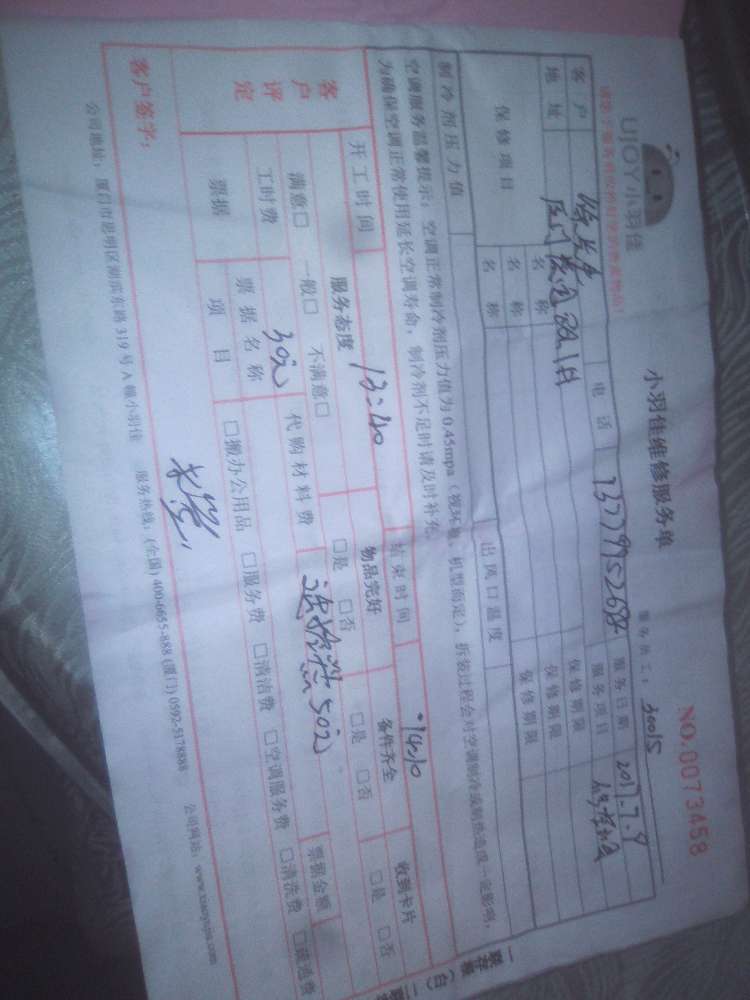 UJOY小羽佳
小羽佳维修服务单
NO.0073458
服务员工： 30015
客户 电话 服务日期 2017.7.9
地址 服务项目
保修项目 名称 保修期限
名称 保修期限
名称 保修期限
制冷剂压力值 出风口温度
空调服务温馨提示：空调正常制冷剂压力值为0.45mpa（视环境、机型而定），拆装过程会对空调制冷或制热造成一定影响，
为确保空调正常使用延长空调寿命，制冷剂不足时请及时补充
开工时间 13:40 结束时间 14:10
客户评定
服务态度 物品完好 备件齐全 收到卡片
满意□ 一般□ 不满意□ □是 □否 □是 □否 □是 □否
工时费 30元 代购材料费
票据 票据名称 票据金额
项目 □搬办公用品 □服务费 □清洁费 □空调服务费 □清洗费
客户签字：
公司地址：厦门市思明区湖滨东路319号A幢小羽佳 服务热线：(全国) 400-6655-888 (厦门) 0592-5178888 公司网站：www.xiaoyujia.com